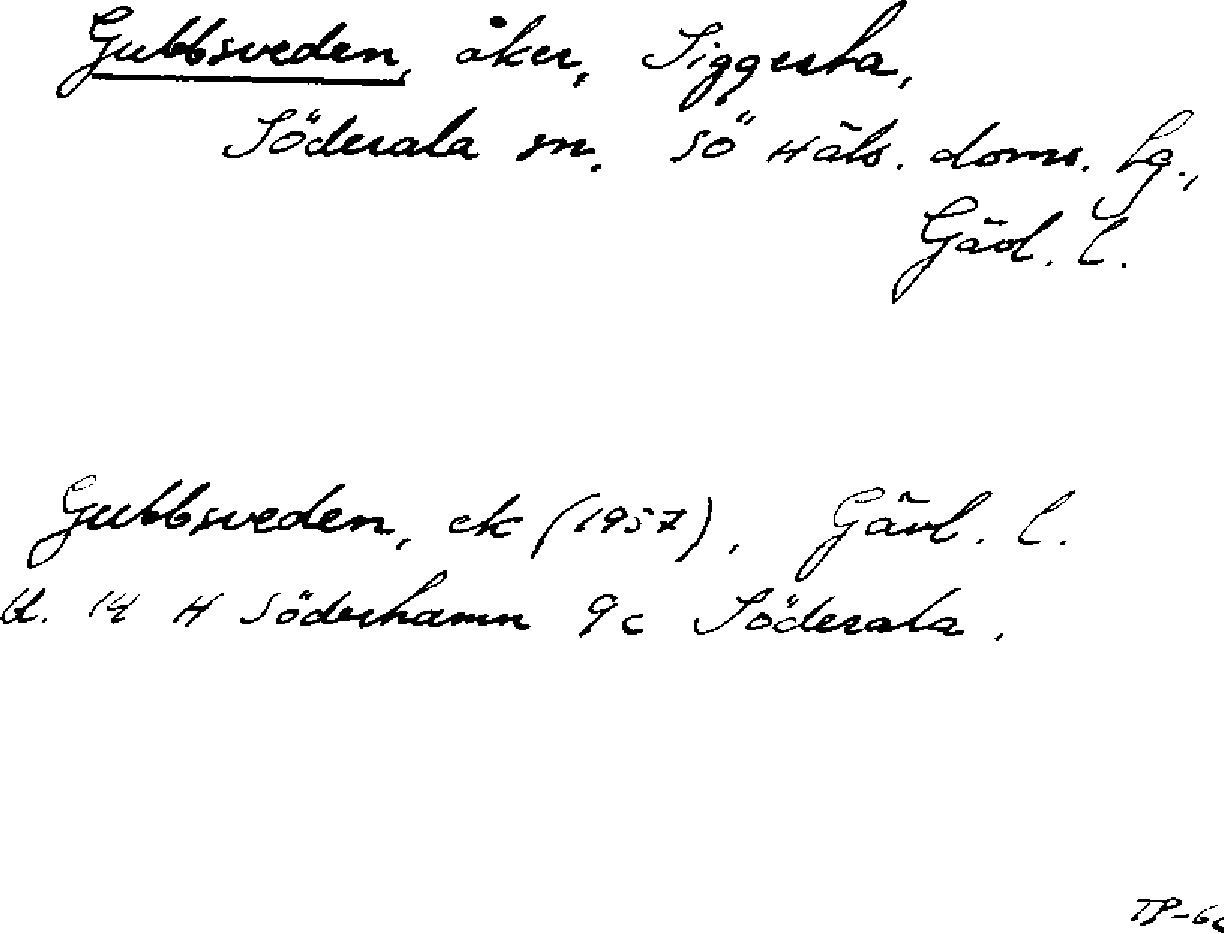 Gubbsveden, åker, Siggesta,
Söderala sn. SÖ Häls. doms. tg.,
Gävl. l.
Gubbsveden, ek (1957). Gävl. l.
bl. 14 H Söderhamn 9c Söderala.
TP-60